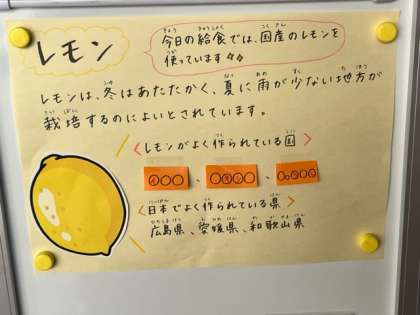 レモン
今日の給食では、国産のレモンを
使っています
レモンは、冬はあたたかく、夏に雨が少ない地方が
栽培するのによいとされています。
<レモンがよく作られている国>
、 、
<日本でよく作られている県>
広島県、愛媛県、和歌山県